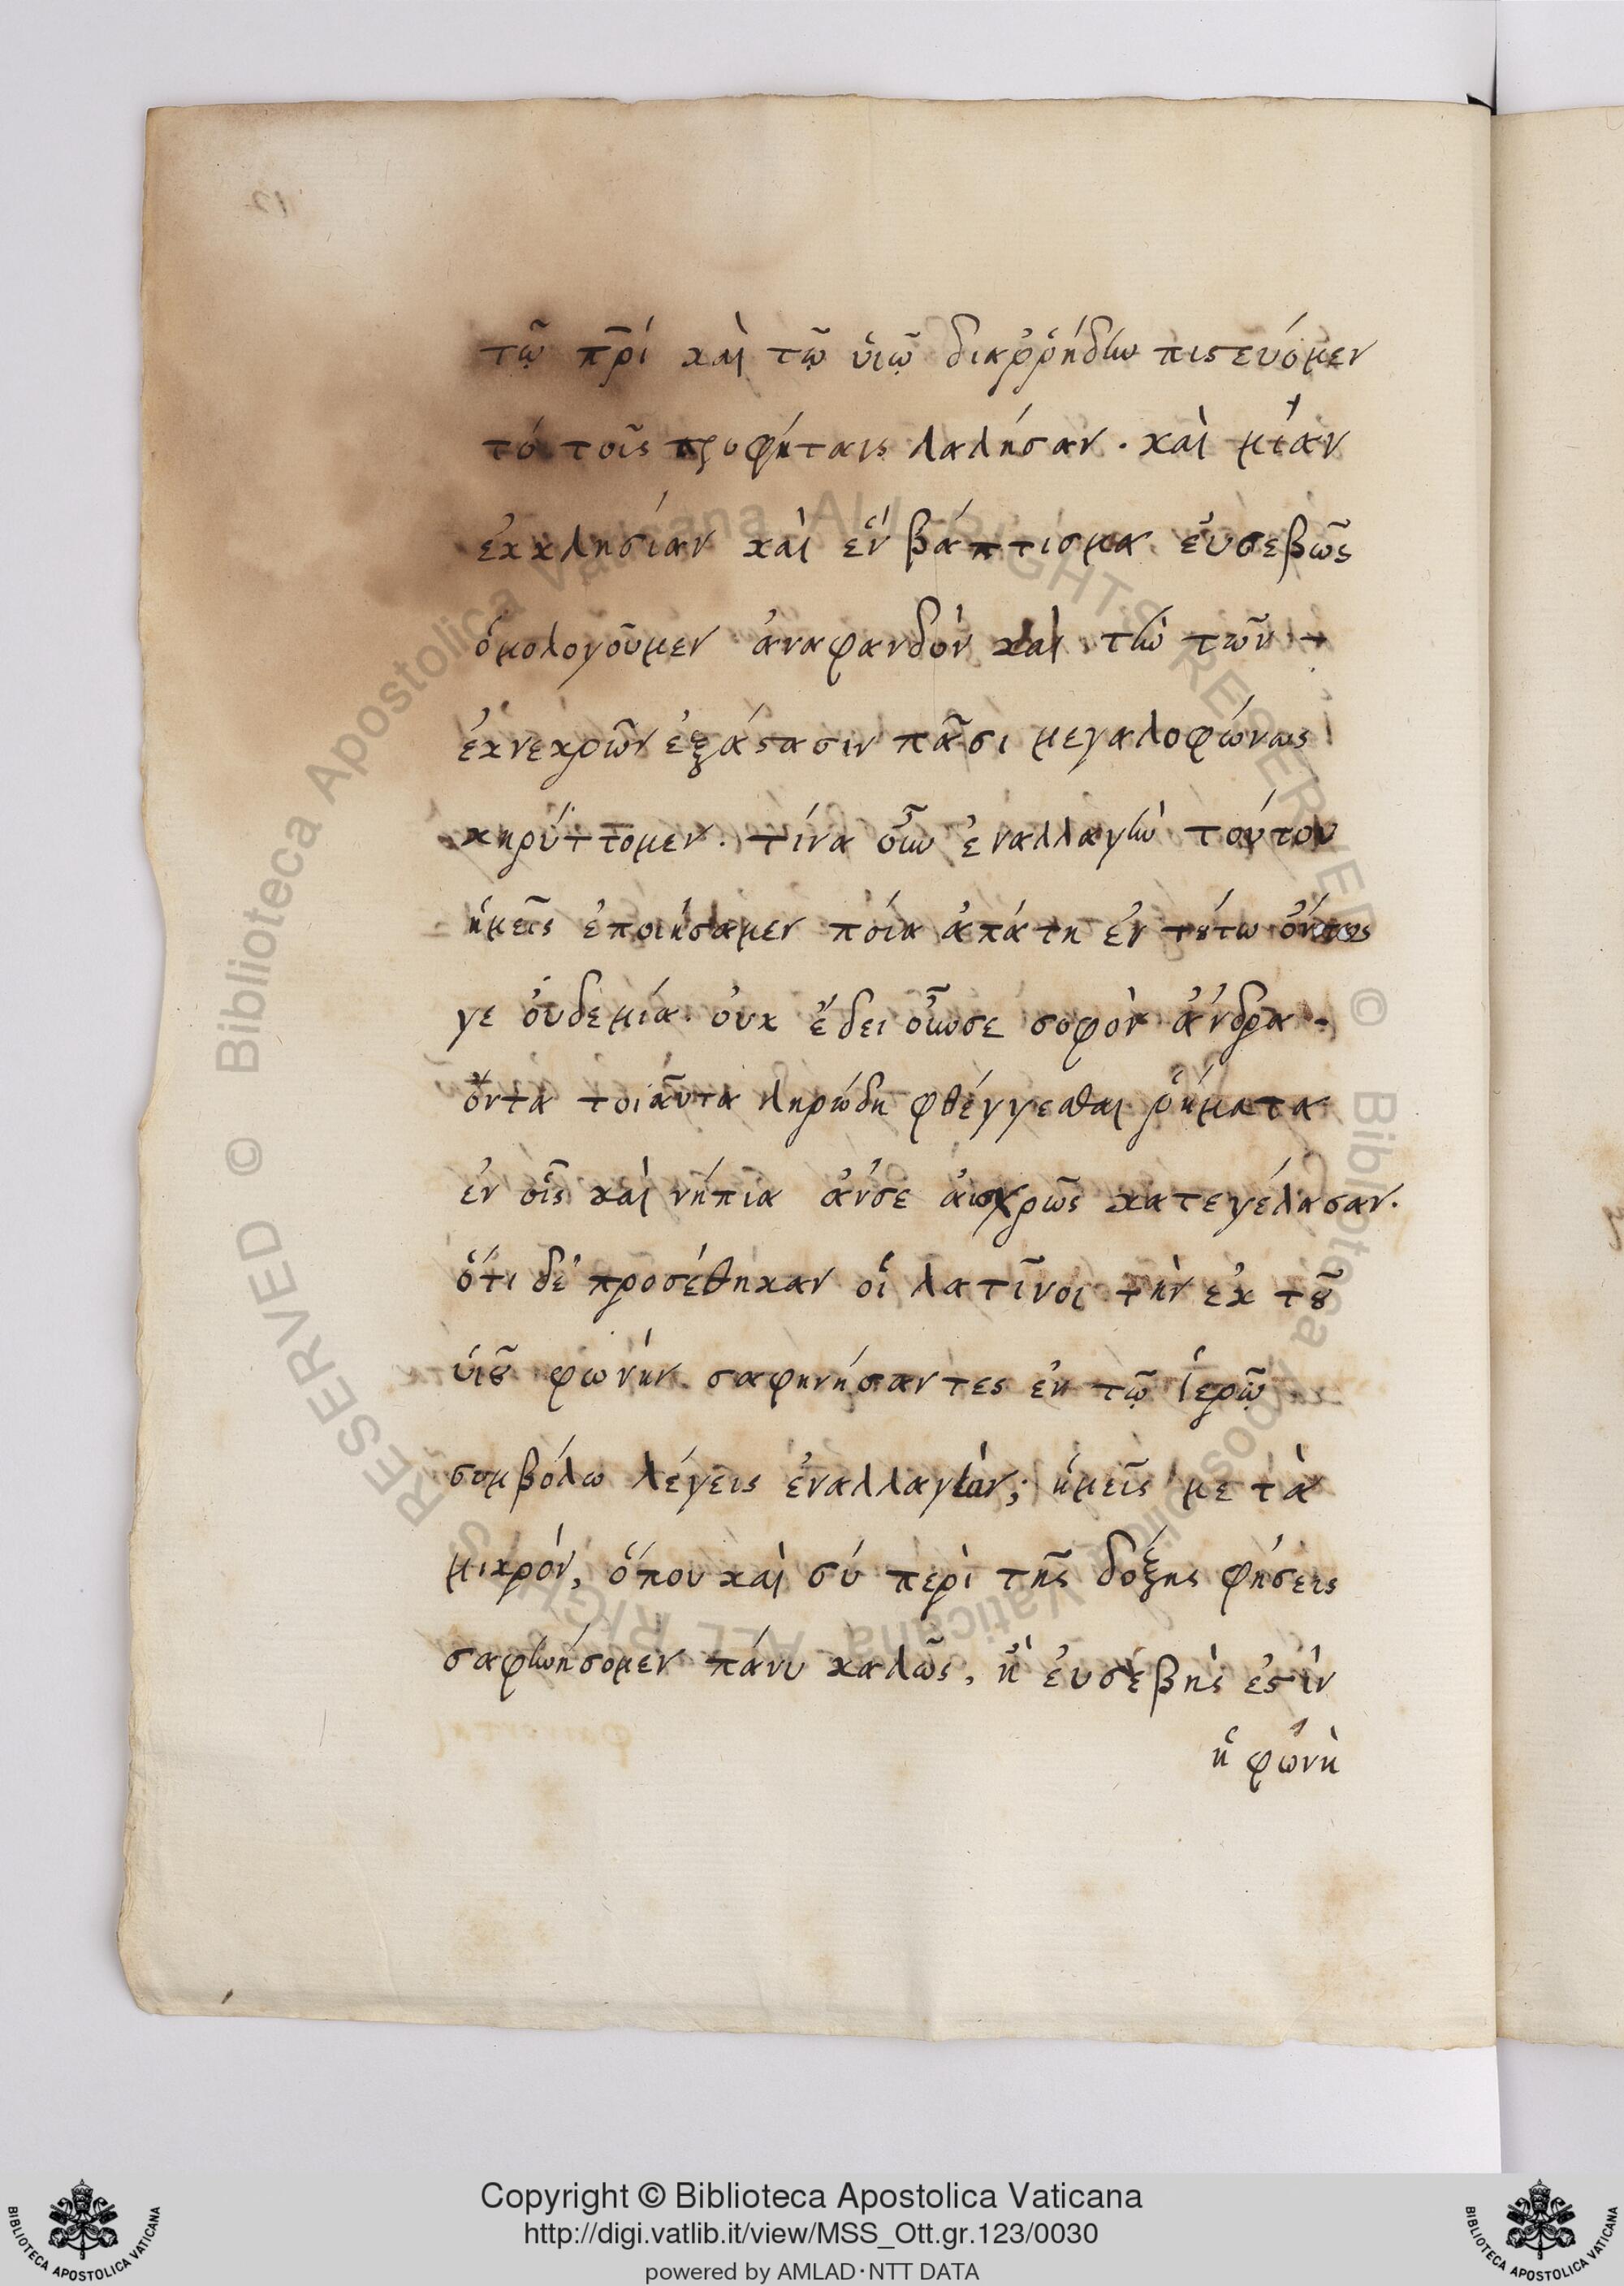 τῷ πρὶ καὶ τῷ ὑιῷ διαῤῥήδην πιστεύομεν
τό τοῖς προφήταις λαλήσαν. καὶ μίαν
ἐκκλησίαν καὶ ἓν βάπτισμα ἐυσεβῶς
ὁμολογοῦμεν ἀναφανδὸν καὶ τὴν τῶν
ἐκνεκρῶν ἐξάστασιν πᾶσι μεγαλοφώνως
κηρύττομεν. τίνα οὖν ἐναλλαγὴν τούτου
ἡμεῖς ἐποιήσαμεν πόια ἀπάτη ἐν τούτω ὄντως
γε ὀυδεμία. ὀυκ ἔδει οὖνσε σοφὸν ἄνδρα
ὄντα τοιᾶυτα ληρώδη φθέγγεσθαι ῥήματα
ἐν οἷς καὶ νήπια ἄνσε ἀισχρῶς κατεγέλασαν.
ὅτι δὲ προσέθηκαν οἱ λατῖνοι τὴν ἐκ τοῦ
ὑιοῦ φωνήν σαφηνήσαντες ἐν τῷ ἱερῷ
συμβόλω λέγεις ἐναλλαγὴν; ἡμεῖς μετὰ
μικρόν, ὅπου καὶ σύ περὶ τῆς δόξης φήσεις
σαφηνήσομεν πάνυ καλῶς, ἢ ἐυσεβὴς ἐστὶν
ἡ φωνὴ
Copyright © Biblioteca Apostolica Vaticana
http://digi.vatlib.it/view/MSS_Ott.gr.123/0030
powered by AMLAD·NTT DATA